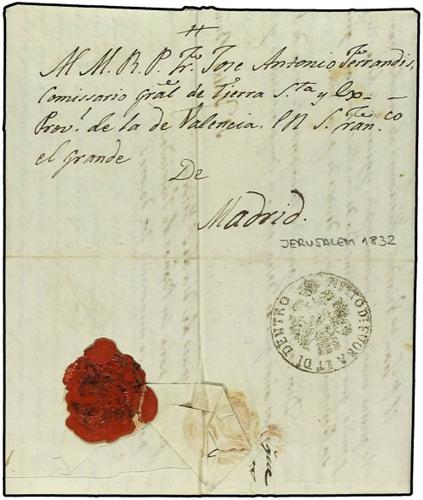 Al M. R. P. Fr. Jose Antonio Ferrandis,
Comissario Gral de Tierra Sta y Ex-
Prov.l de la de Valencia. EN S. Fran.co
el Grande
De
Madrid.
JERUSALEM 1832
NETTO DI FUORA ET DI DENTRO